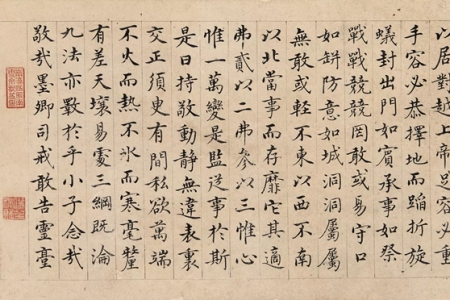 以居對越上帝足容必重
手容必恭擇地而蹈折旋
蟻封出門如賓承事如祭
戰戰兢兢罔敢或易守口
如缾防意如城洞洞屬屬
無敢或輕不東以西不南
以北當事而存靡它其適
弗貳以二弗參以三惟心
惟一萬變是監從事於斯
是曰持敬動靜無違表裏
交正須臾有間私欲萬端
不火而熱不冰而寒毫釐
有差天壤易處三綱既淪
九法亦斁於乎小子念哉
敬哉墨卿司戒敢告靈臺